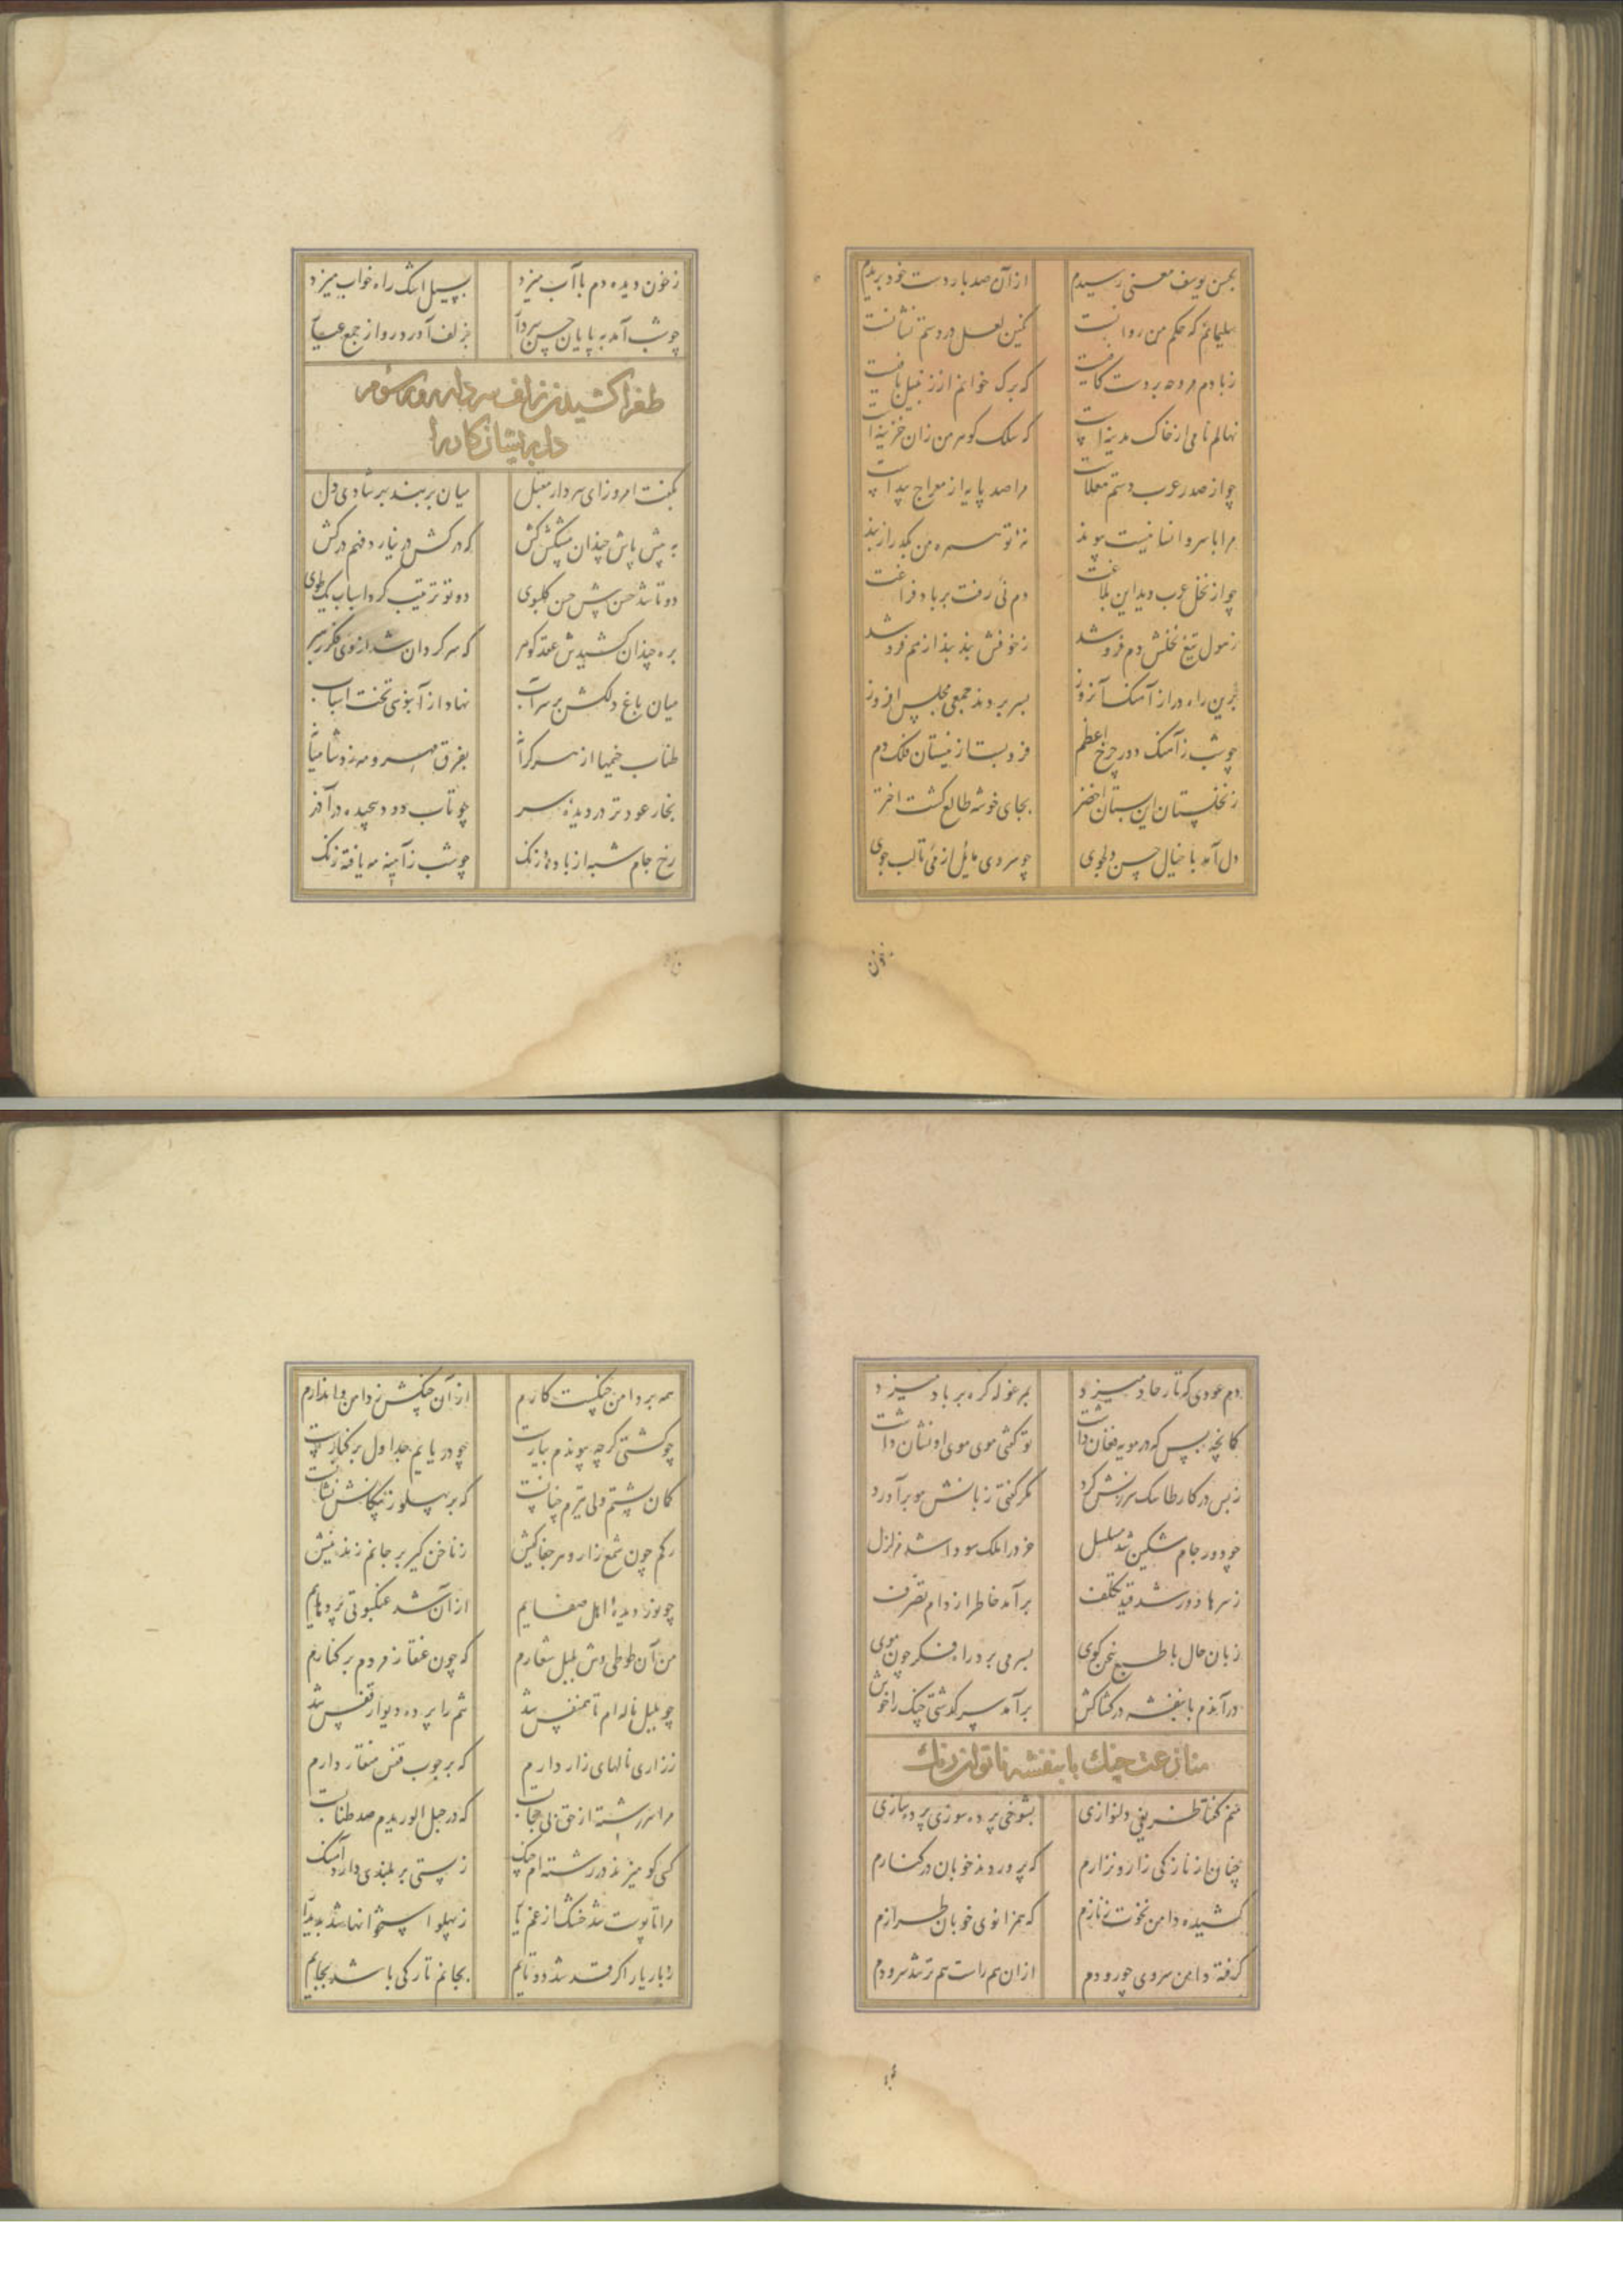 بحسن یوسف معنی رسیدم
از آن صد بار دست خود بریدم
سلیمانم که حکم من روانست
نگین لعل در دستم نشانست
ز بادم مروحه بر دست کافیست
که برک خوانم از زنبیل بافیست
نهالم نامی از خاک مدینه است
که سلک کوهر من زان خزینه است
چو از صدر عرب دستم معلاست
مرا صد پایه از معراج پیداست
مرا با سرو انسا نیست پیوند
نه تو
چو از نخل عرب دید این بلاغت
دم نی رفت بر باد فراغت
ز هول تیغ نخلش دم فرو شد
ز خوفش بند بند از هم فرو شد
برین راه دراز آهنک آنروز
بسر بردند جمعی مجلس افروز
چو شب ز آهنک دور چرخ اعظم
فرو بست از نیستان فلک دم
ز نخلستان این بستان اخضر
بجای خوشه طالع کشت اختر
دل آمد با خیال حسن دلجوی
چو سروی مایل از نی تا لب جوی
ز خون
ز خون دیده دم با آب میزد
بسیل اشک راه خواب میزد
چو شب آمد به پایان حسن سردار
بزلف آورد رو از جمع
طغرا کشیدن زلف سردار
دل پریشان کار را
بگفت امروز ای سردار مقبل
میان بربند بر شادی دل
به پیش پاش چندان پیشکش کش
که در کش در نیارد فهم درکش
دو تا شد حسن پیش حسن کلبوی
دو تو ترتیب کرد اسباب یک طوی
بره چندان کشیدش عقد کوهر
که سر کردان شد از وی فکر رهبر
میان باغ دلکش بر سر آب
نهاد از آبنوسی تخت اسباب
طناب خیمها از هر کران
بفرق مهر و مه زد
بخار عود تر در دیده سر
چو تاب دود پیچیده در آذر
رخ جام شبه از باده زنک
چو شب ز آیینه مه یافته زنک
دم عودی که تار حاد میزد
بمرغوله کره بر باد میزد
کمانچه بس که در مویه فغان داشت
تو گفتی موی موی او نشان داشت
ز بس در کار طاسک سرزنش کرد
مگر گفتی زبانش مو برآورد
چو دور جام مشکین شد مسلسل
خرد را ملک سودا شد مزلزل
ز سرها دور شد قید تکلف
برآمد خاطر از دام تصرف
زبان حال با طبع سخن کوی
بسر می برد راه فکر چون موی
درآندم با بنفشه در کشاکش
برآمد سر کذشتی چنک را خوش
منازعت چنک با بنفشه ناتوان رنک
منم کفتا ظریفی دلنوازی
بشوخی پرده سوزی پرده سازی
چنان از نازکی زار و نزارم
که پروردند خوبان در کنارم
کشیده دامن نخوت ز نازم
که همزانوی خوبان طرازم
کرفته دامن سروی چو رودم
از ان هم راست هم تر شد سرودم
همه بر دامن چنکست کارم
از آن چنکش ز دامن وا ندارم
چو کشتی کرچه پیوندم
چو دریایم جداول بر کنارست
کمان پشتم ولی تیرم چنانست
که بر پهلو ز پیکانش نشانست
رکم چون شمع زار و سر جفاکیش
ز ناخن کیر بر جانم زند نیش
چو نور دیده اهل صفایم
از آن شد عنکبوتی پردهایم
من آن طوطی وش بلبل شعارم
که چون عنقا ز مردم بر کنارم
چو بلبل ناله ام تا همنفس شد
تنم را پرده دیوار قفس شد
ز زاری نالهای زار دارم
که بر چوب قفس منقار دارم
مرا سر رشته از حق بی حجابست
که در حبل الوریدم صد طنابست
کسی کو میزند در رشته ام چنک
ز پستی بر بلندی دارد آهنک
مرا تا پوست شد خشک از غم یار
ز پهلو استخوانها شد پدیدار
ز بار یار اکر قد شد دو تایم
بجانم تار کی باشد بجایم